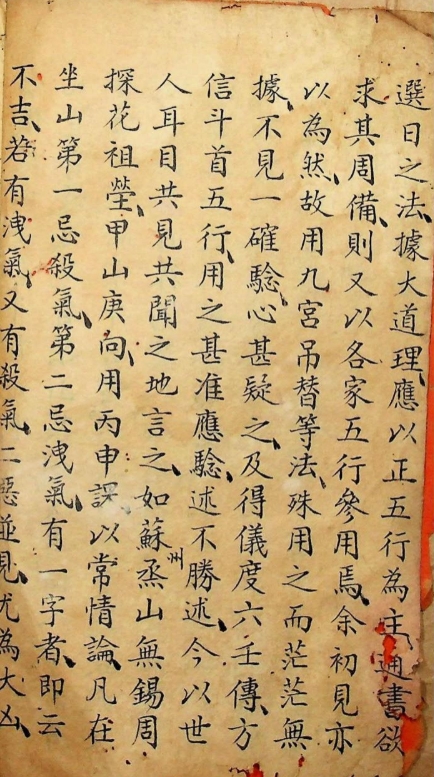 選日之法、據大道理、應以正五行為主、通書欲
求其周備、則又以各家五行參用焉、余初見亦
以為然、故用九宮吊替等法、殊用之而茫茫無
據、不見一確驗、心甚疑之、及得儀度六壬傳、方
信斗首五行、用之甚准應驗、述不勝述、今以世
人耳目共見共聞之地言之、如蘇州烝山無錫周
探花祖塋、甲山庚向、用丙申課、以常情論、凡在
坐山第一忌殺氣、第二忌洩氣、有一字者、即云
不吉、若有洩氣、又有殺氣、二惡並見、尤為大凶、